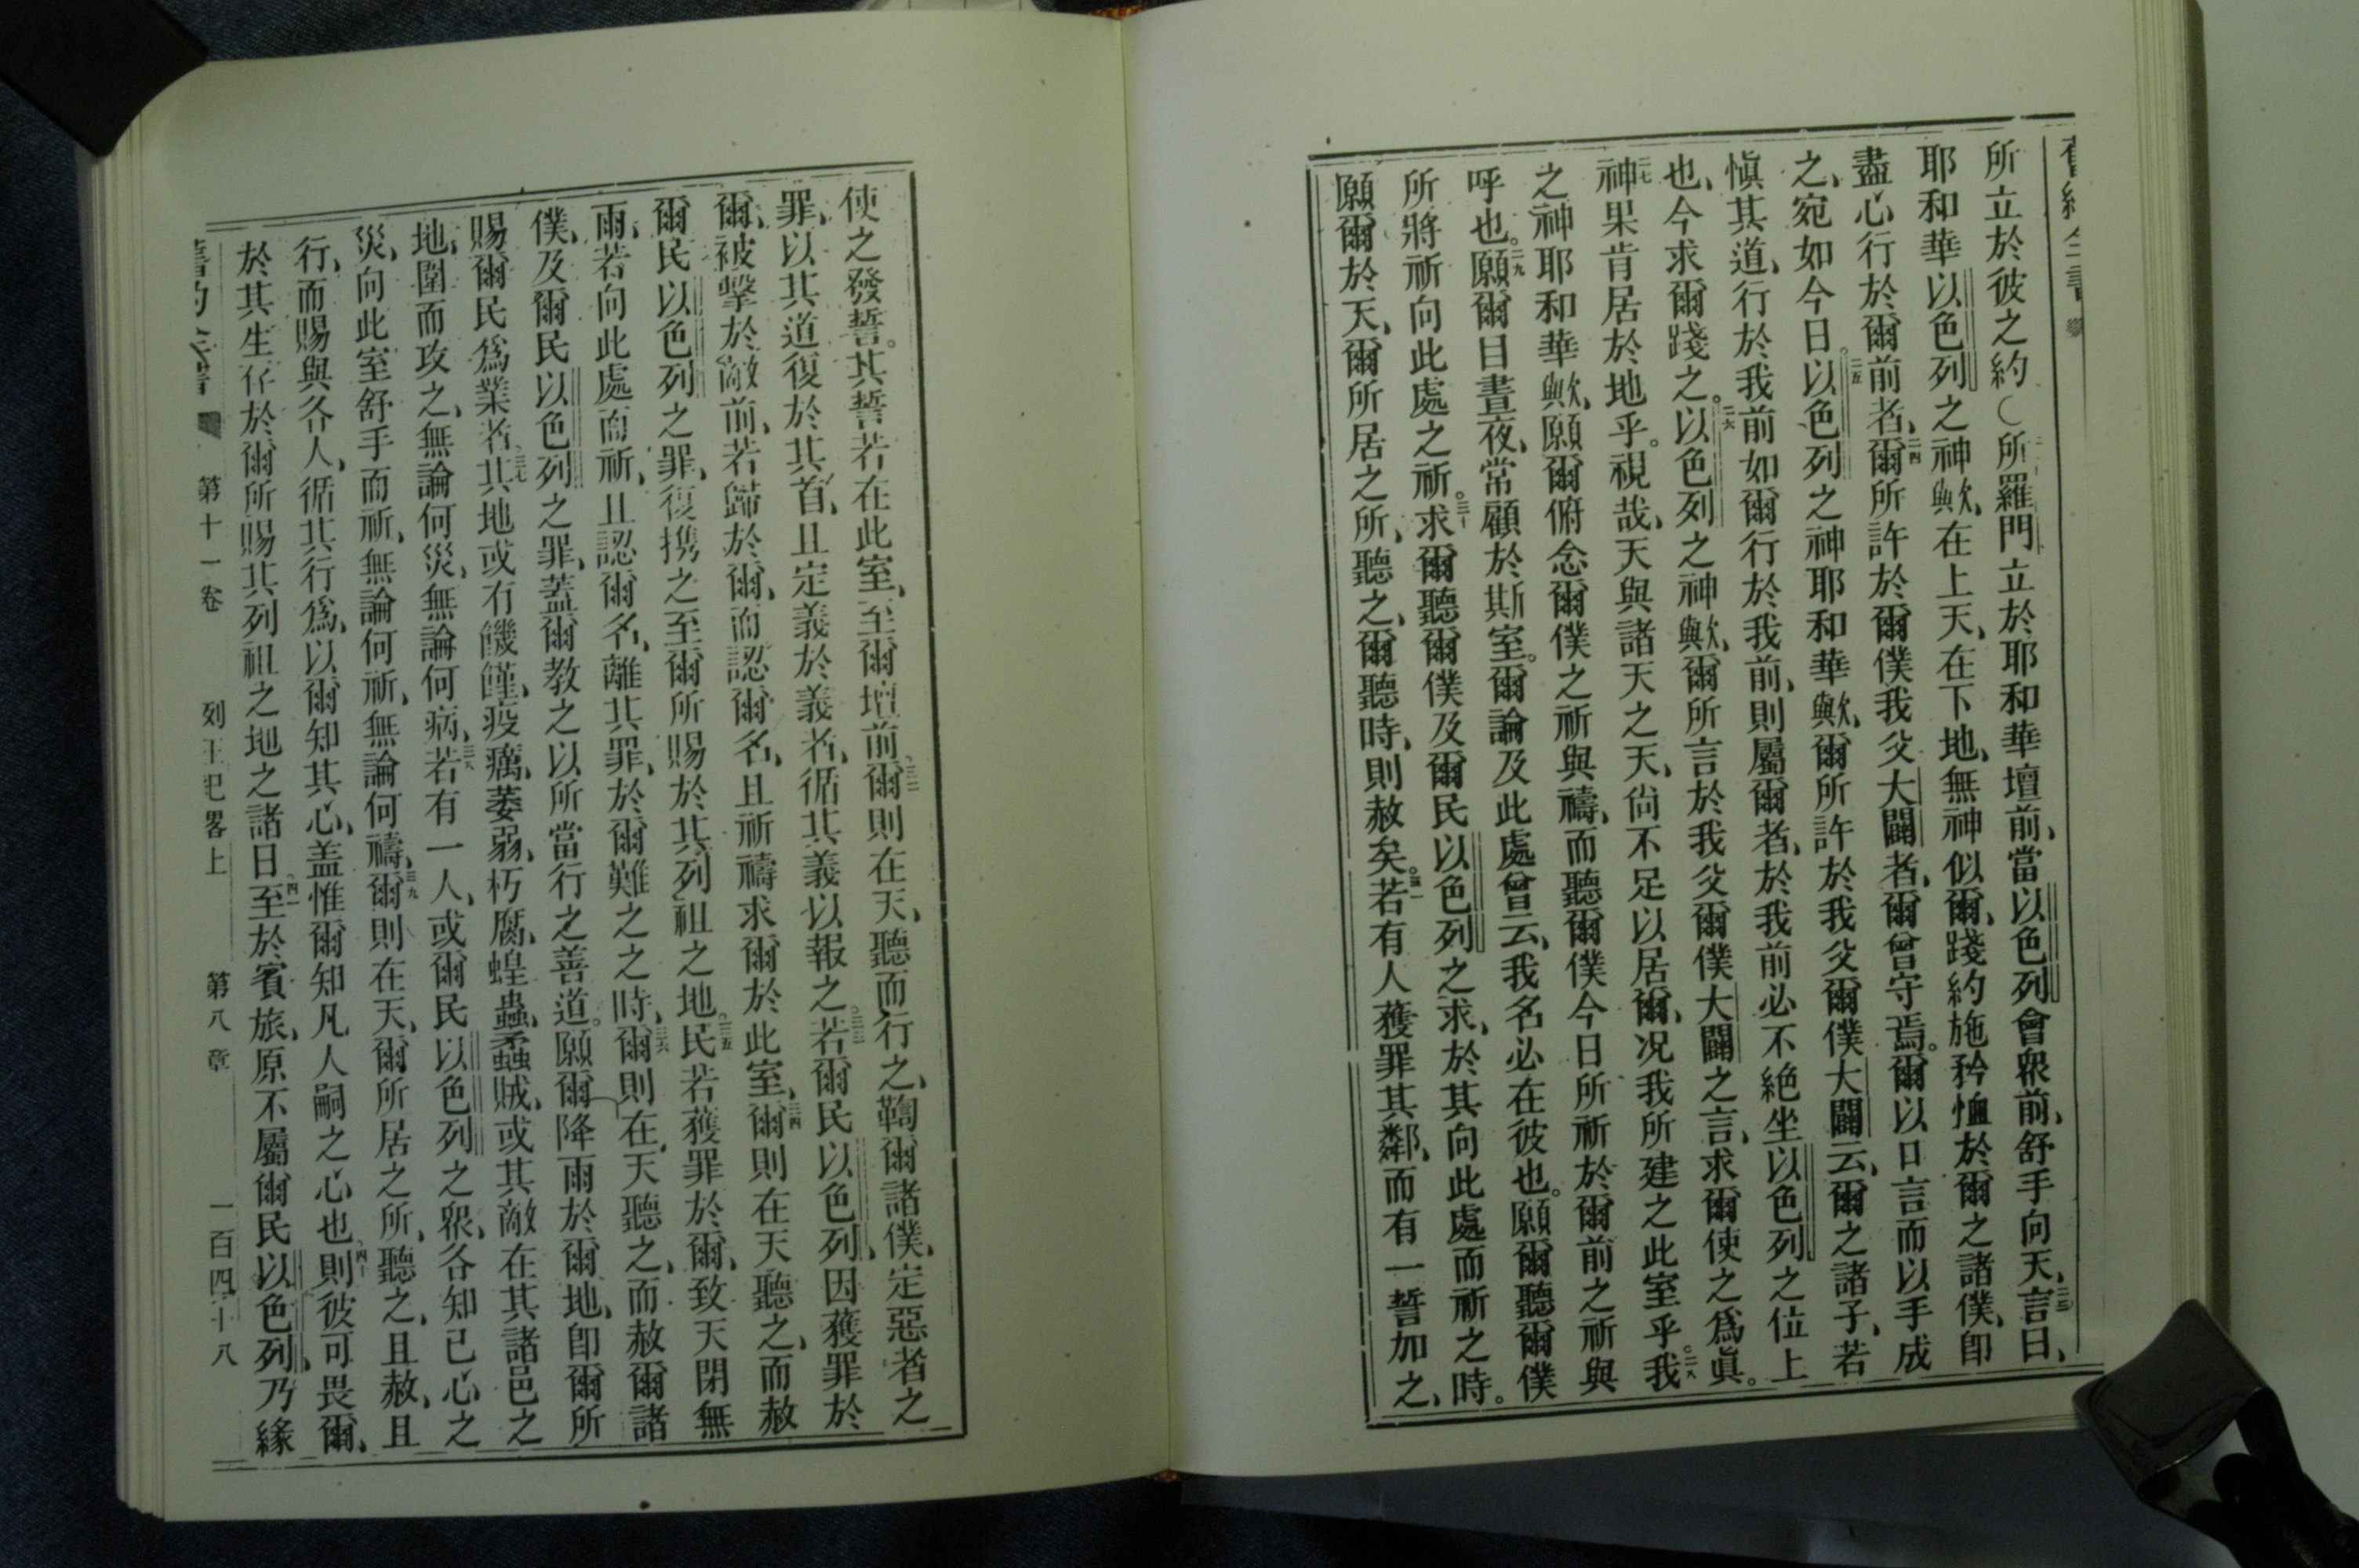 所立於彼之約○所羅門立於耶和華壇前、當以色列會眾前、舒手向天、言曰、
耶和華以色列之神歟、在上天、在下地、無神似爾、踐約施矜恤於爾之諸僕、即
盡心行於爾前者、爾所許於爾僕我父大闢者、爾曾守焉。爾以口言而以手成
之、宛如今日。以色列之神耶和華歟、爾所許於我父爾僕大闢云、爾之諸子、若
慎其道、行於我前如爾行於我前、則屬爾者、於我前必不絕坐以色列之位上
也、今求爾踐之。以色列之神歟、爾所言於我父爾僕大闢之言、求爾使之為眞。
神果肯居於地乎。視哉、天與諸天之天、尚不足以居爾、况我所建之此室乎。我
之神耶和華歟、願爾俯念爾僕之祈與禱、而聽爾僕今日所祈於爾前之祈與
呼也。願爾目晝夜、常顧於斯室。爾論及此處曾云、我名必在彼也。願爾聽爾僕
所將祈向此處之祈。求爾聽爾僕及爾民以色列之求、於其向此處而祈之時。
願爾於天、爾所居之所、聽之、爾聽時、則赦矣。若有人獲罪其鄰、而有一誓加之、
使之發誓。其誓若在此室、至爾壇前。爾則在天、聽而行之、鞫爾諸僕、定惡者之
罪、以其道復於其首、且定義於義者、循其義以報之。若爾民以色列、因獲罪於
爾、被擊於敵前、若歸於爾、而認爾名、且祈禱求爾於此室、爾則在天聽之、而赦
爾民以色列之罪、復攜之至爾所賜於其列祖之地。民若獲罪於爾、致天閉無
雨、若向此處而祈、且認爾名、離其罪、於爾難之之時、爾則在天聽之、而赦爾諸
僕、及爾民以色列之罪、蓋爾教之以所當行之善道。願爾降雨於爾地、即爾所
賜爾民為業者。其地或有饑饉、疫癘、萎弱、朽腐、蝗蟲、蟊賊、或其敵在其諸邑之
地、圍而攻之、無論何災、無論何病、若有一人、或爾民以色列之眾、各知己心之
災、向此室舒手而祈、無論何祈、無論何禱、爾則在天、爾所居之所、聽之、且赦、且
行、而賜與各人、循其行為、以爾知其心、盖惟爾知凡人嗣之心也、則彼可畏爾、
於其生存於爾所賜其列祖之地之諸日。至於賓旅、原不屬爾民以色列、乃緣
第十一卷 列王紀畧上 第八章 一百四十八